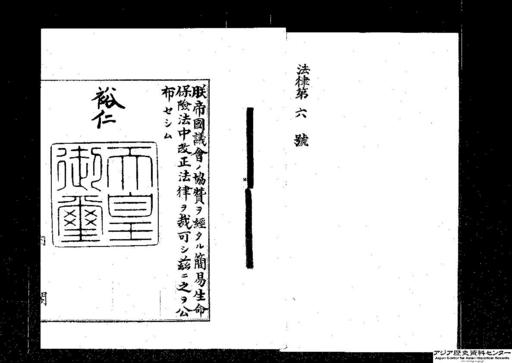 法律第六號
朕帝國議會ノ協賛ヲ經タル簡易生命
保險法中改正法律ヲ裁可シ茲ニ之ヲ公
布セシム
裕仁
天皇
御璽
内閣
アジア歴史資料センター
Japan Center for Asian Historical Records